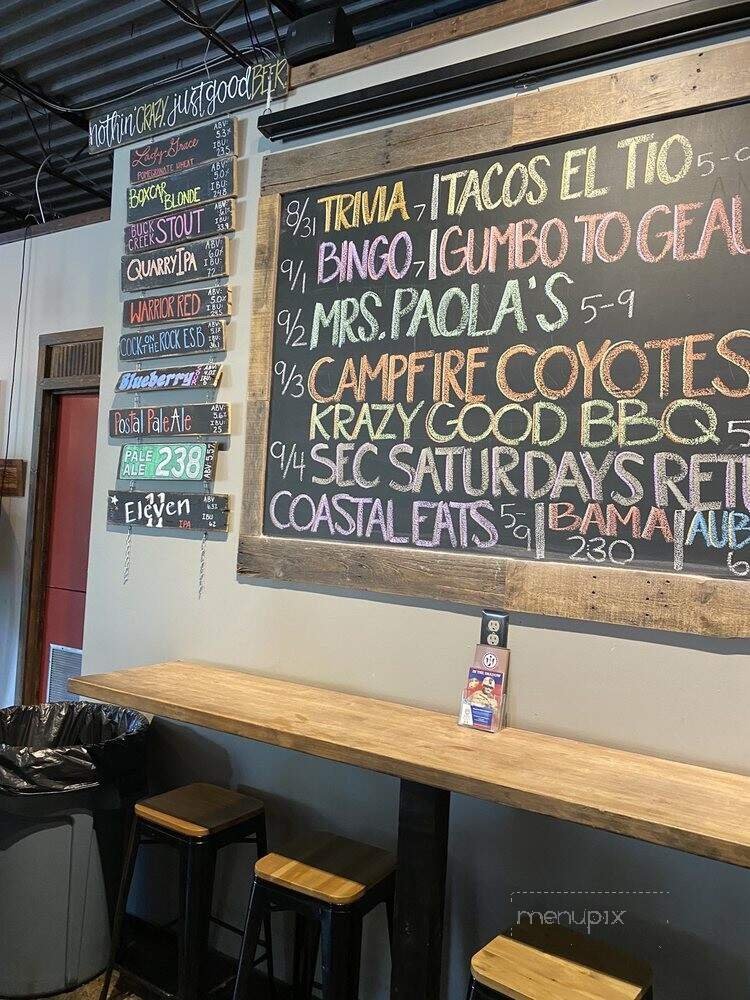 nothin' CRAZY, just good BEER
Lady Grace
POMEGRANATE WHEAT
ABV:
5.3%
IBU:
23.5
BOXCAR
BLONDE
ABV:
5.0%
IBU:
24.8
BUCK
CREEK STOUT
ABV:
IBU:
33.9
QUARRY IPA
ABV:
6.0%
IBU:
72
WARRIOR RED
ABV:
5.0%
IBU:
COCK ON THE ROCK ESB
ABV:
IBU:
Blueberry
Postal Pale Ale
ABV:
5.6%
IBU:
25
PALE
ALE 238
ABV
Eleven
11
IPA
ABV
IBU
62
8/31 TRIVIA 7 | TACOS EL TIO 5-9
9/1 BINGO 7 | GUMBO TO GEAU
9/2 MRS. PAOLA'S 5-9
9/3 CAMPFIRE COYOTES
KRAZY GOOD BBQ 5
9/4 SEC SATURDAYS RETU
COASTAL EATS 5-9 | BAMA | AUB
230 6
IN THE SHADOW
menupix